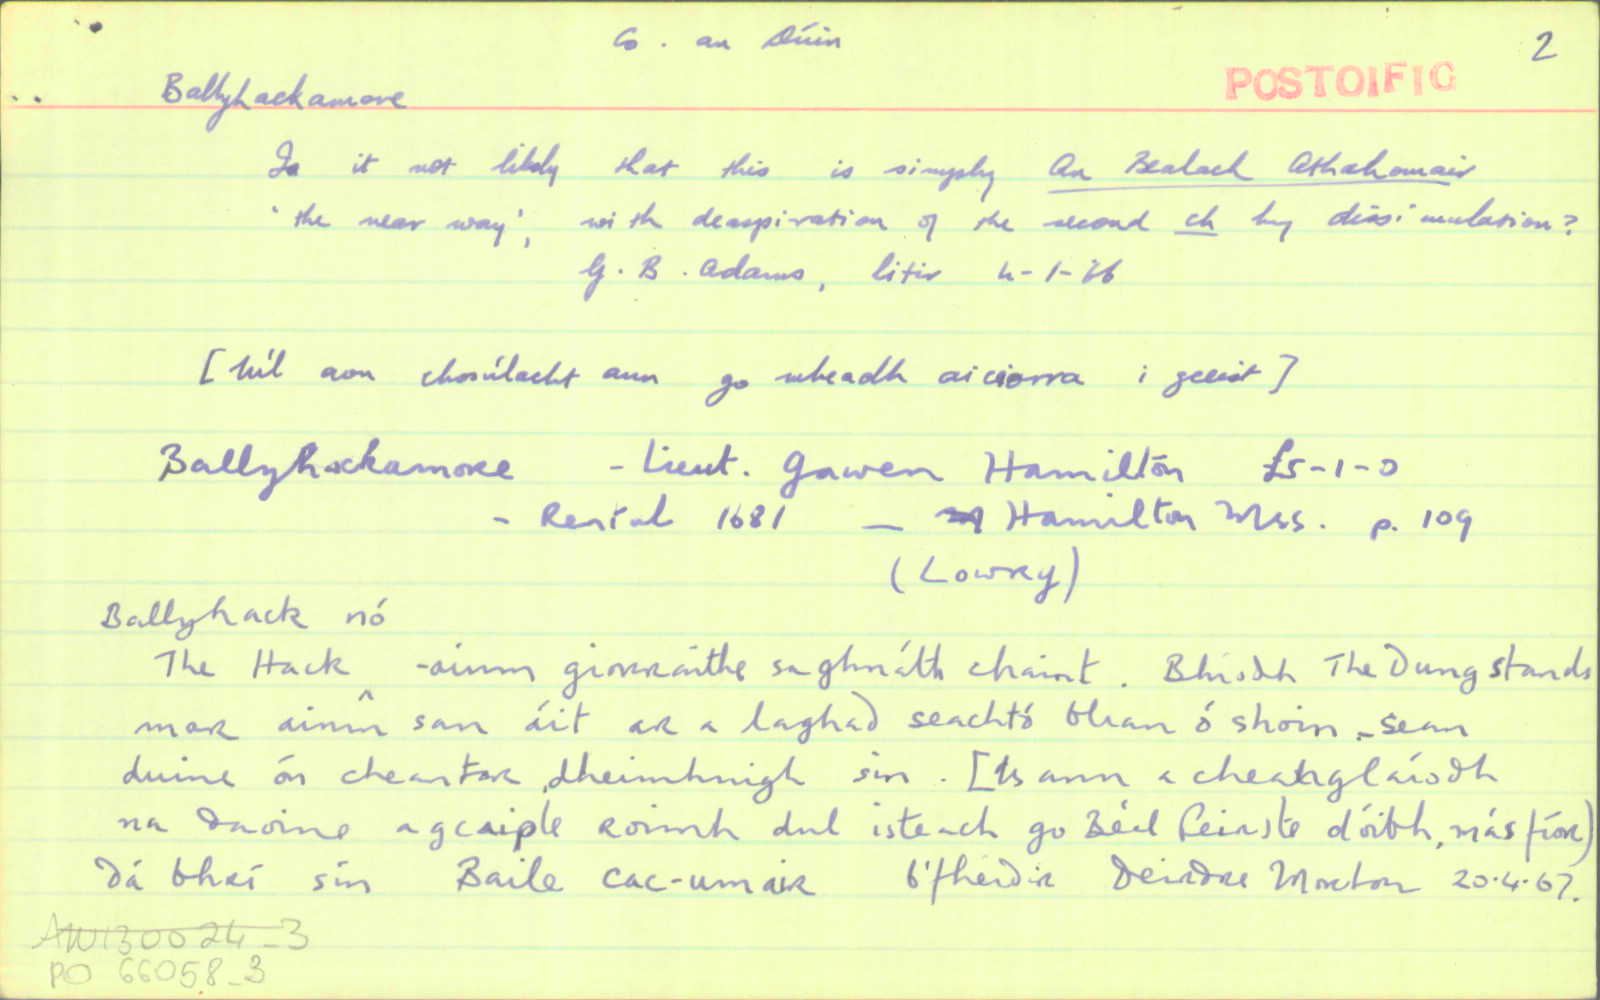 Co. an Dúin
2
Ballyhackamore
POSTOIFIG
Is it not likely that this is simply An Bealach Athchomair
'the near way', with deaspiration of the second ch by dissimulation?
G. B. Adams, litir 4-1-66
[Níl aon chosúlacht ann go mbeadh aiciorra i gceist]
Ballyhackamore - Lieut. Gawen Hamilton £5-1-0
- Rental 1681 — Hamilton Mss. p. 109
(Lowry)
Ballyhack nó
The Hack - ainm giorraithe sa ghnáth chaint. Bhíodh The Dung stands
mar ainm san áit ar a laghad seachtó blian ó shoin - Sean
duine ón cheantar, dheimhnigh sin. [Is ann a cheanglaíodh
na daoine a gcaiple roimh dul isteach go Béal Feirste dóibh, más fíor)
dá bhrí sin Baile cac-umair b'fhéidir Deirdre Morton 20.4.67.
AW130024_3
PO 66058_3